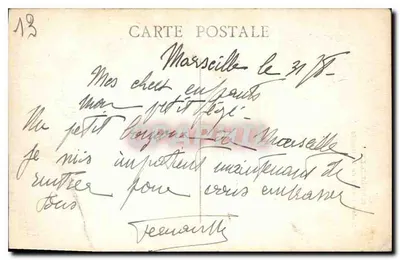 13
CARTE POSTALE
Marseille le 31/8-
Mes chers enfants
mon petit
Un petit bonjour de Marseille,
je suis impatient maintenant de
rentrer pour vous embrasser
tous